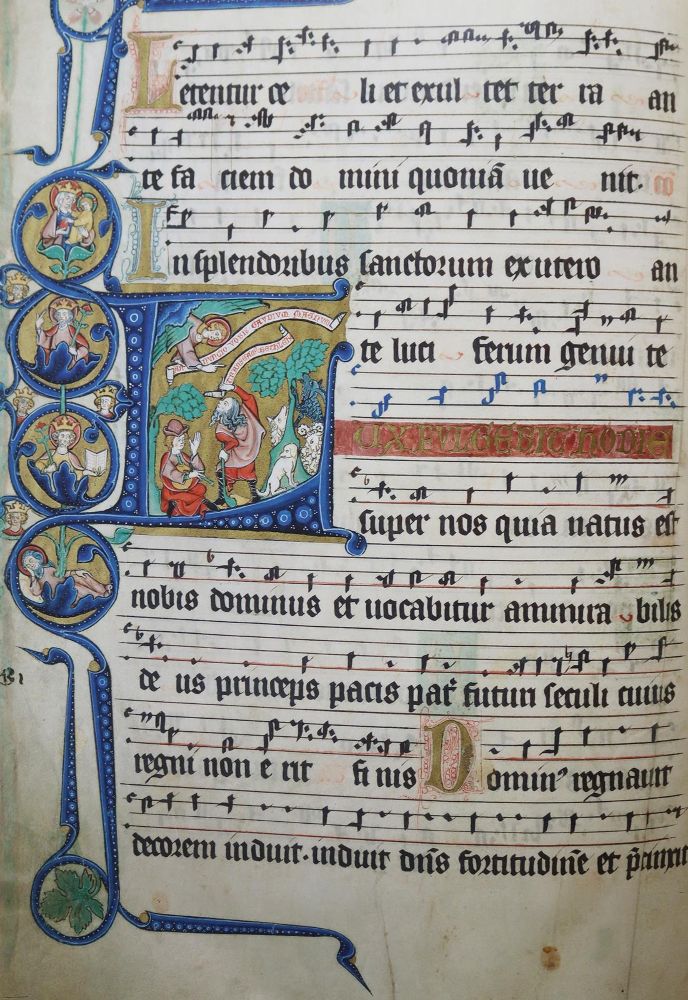 Letentur ce li et exul tet ter ra an
te fa ciem do mini quoniā ue nit.
In splendoribus sanctorum ex utero an
te luci ferum genui te
LUX FULGEBIT HODIE
super nos quia natus est
nobis dominus et uocabitur ammira bilis
de us princeps pacis pat᷑ futuri seculi cuius
regni non e rit fi nis Domin⁹ regnauit
decorem induit. induit dn̄s fortitudinē et p̄cinxit